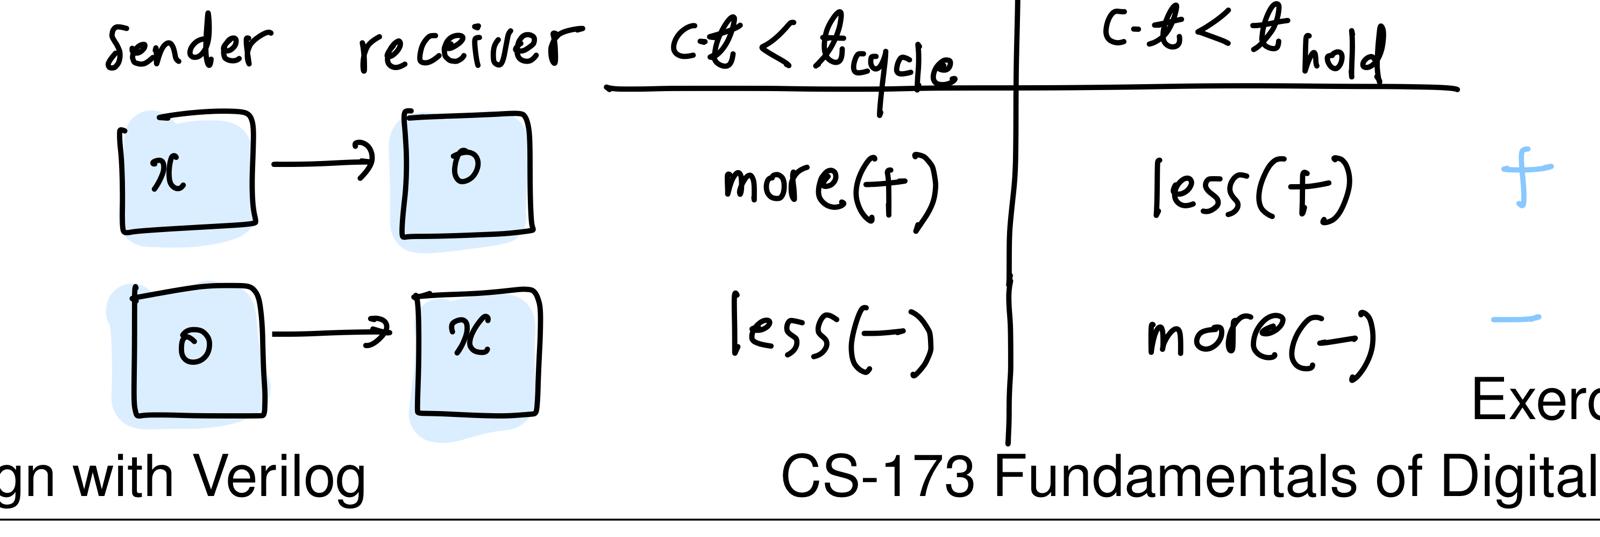 sender receiver c-t < t_cycle c-t < t_hold
x → 0 more(+) less(+) +
0 → x less(-) more(-) -
Exerc
gn with Verilog CS-173 Fundamentals of Digital